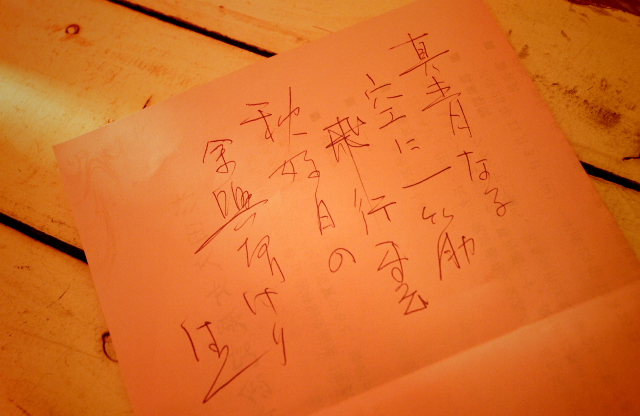 真青なる
空に一筋
飛行雲
秋好日の
余興なりけり